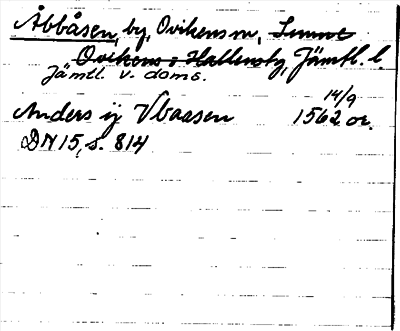 Åbbåsen, by, Ovikens m, Sunne
Ovikens o Hallens tg, Jämtl. l.
Jämtl. v. doms.
Anders ij Vbaasen 14/9 1562 or.
DN 15, s. 814